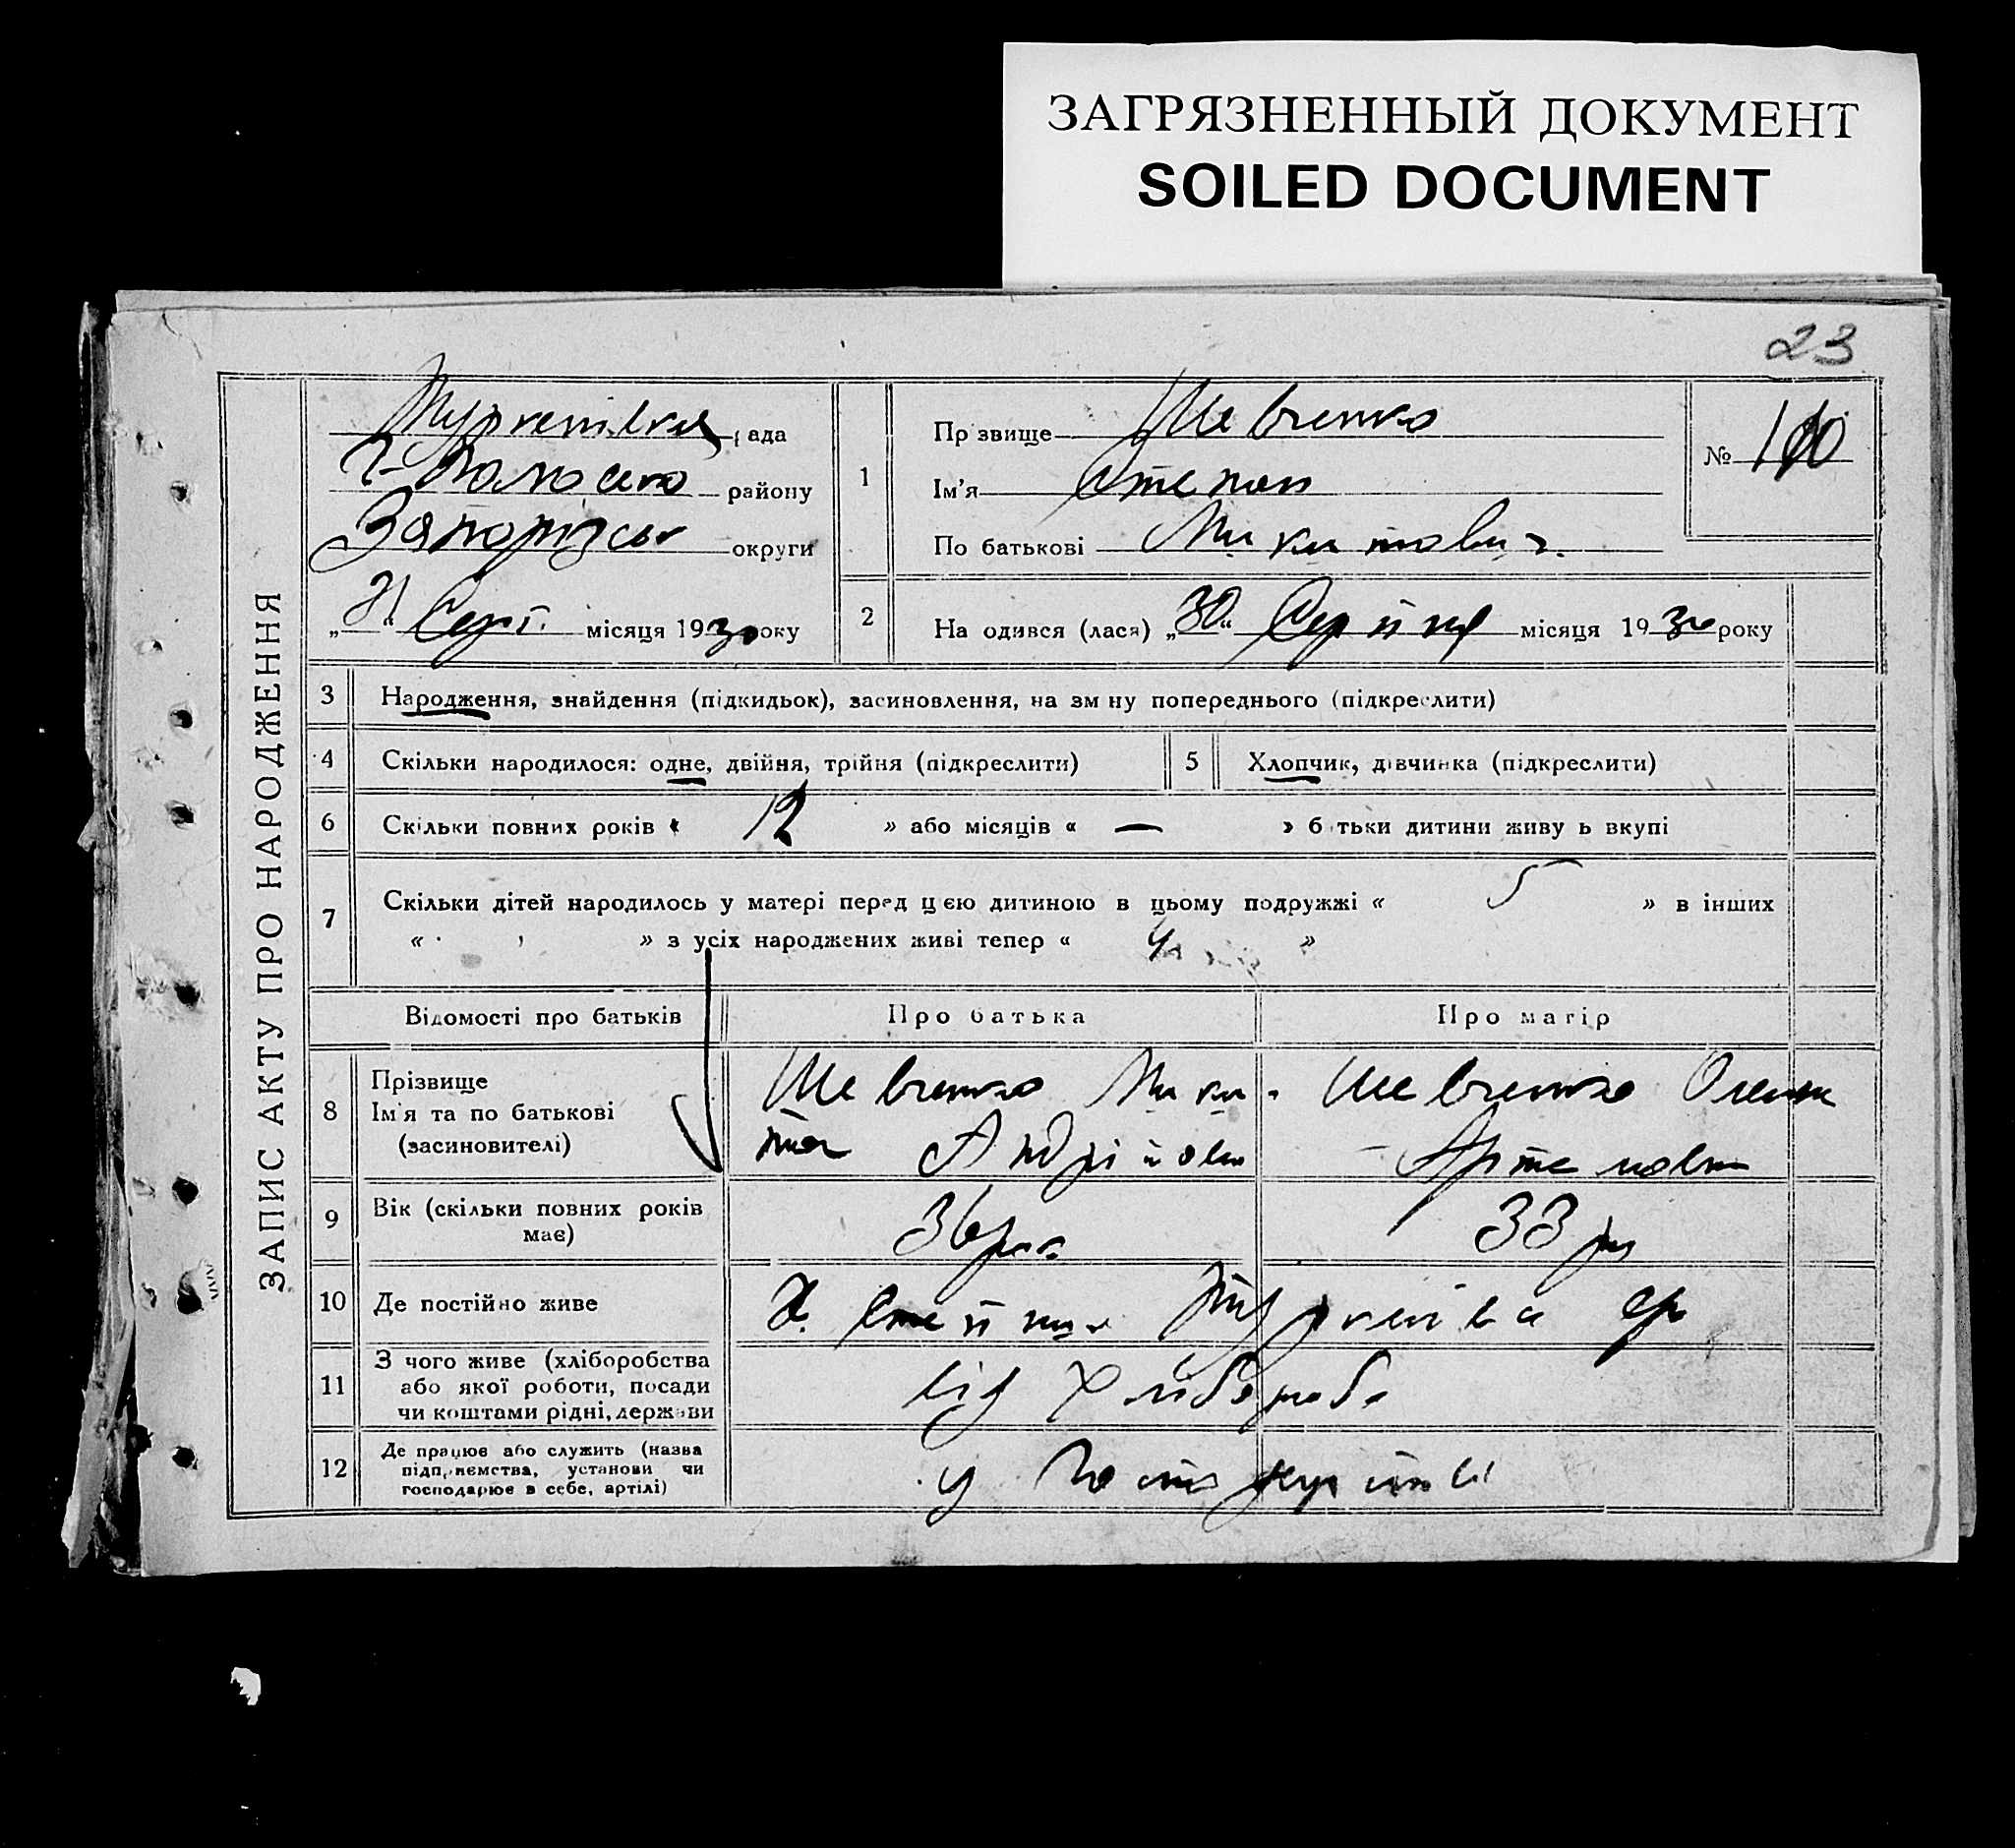 ЗАГРЯЗНЕННЫЙ ДОКУМЕНТ
SOILED DOCUMENT
23
ЗАПИС АКТУ ПРО НАРОДЖЕННЯ
рада
району
округи
„31“ Серп. місяця 1930 року
1
Прізвище Шевченко
Ім'я Степан
По батькові Микитович
№ 110
2 Народився (лася) „30“ Серпня місяця 1930 року
3 Народження, знайдення (підкидьок), засиновлення, на зміну попереднього (підкреслити)
4 Скільки народилося: одне, двійня, трійня (підкреслити)
5 Хлопчик, дівчинка (підкреслити)
6 Скільки повних років « 12 » або місяців « — » батьки дитини живуть вкупі
7 Скільки дітей народилось у матері перед цією дитиною в цьому подружжі « 5 » в інших
« » з усіх народжених живі тепер « 4 »
Відомості про батьків Про батька Про матір
8 Прізвище
Ім'я та по батькові
(засиновителі)
Шевченко Мики-
та Андрійови
Шевченко Олена
Артемовна
9 Вік (скільки повних років
має)
36 рок
33 р
10 Де постійно живе
11 З чого живе (хліборобства
або якої роботи, посади
чи коштами рідні, держави
від Хлібороб
12 Де працює або служить (назва
підприємства, установи чи
господарює в себе, артілі)
у